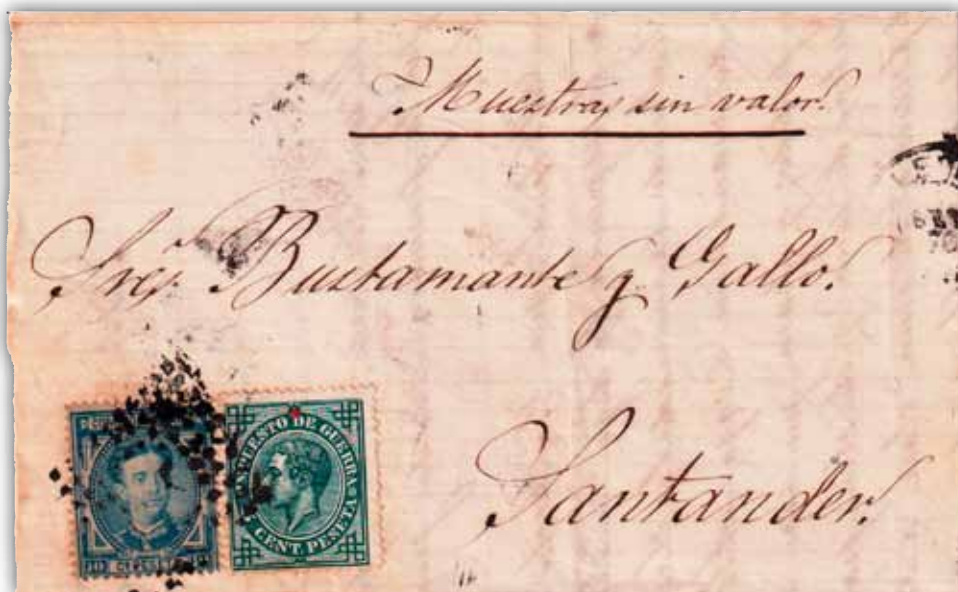 Muestras sin valor.
Sres. Bustamante y Gallo.
Santander.
IMPUESTO DE GUERRA
5 CENT. PESETA
10 Cs PESETA